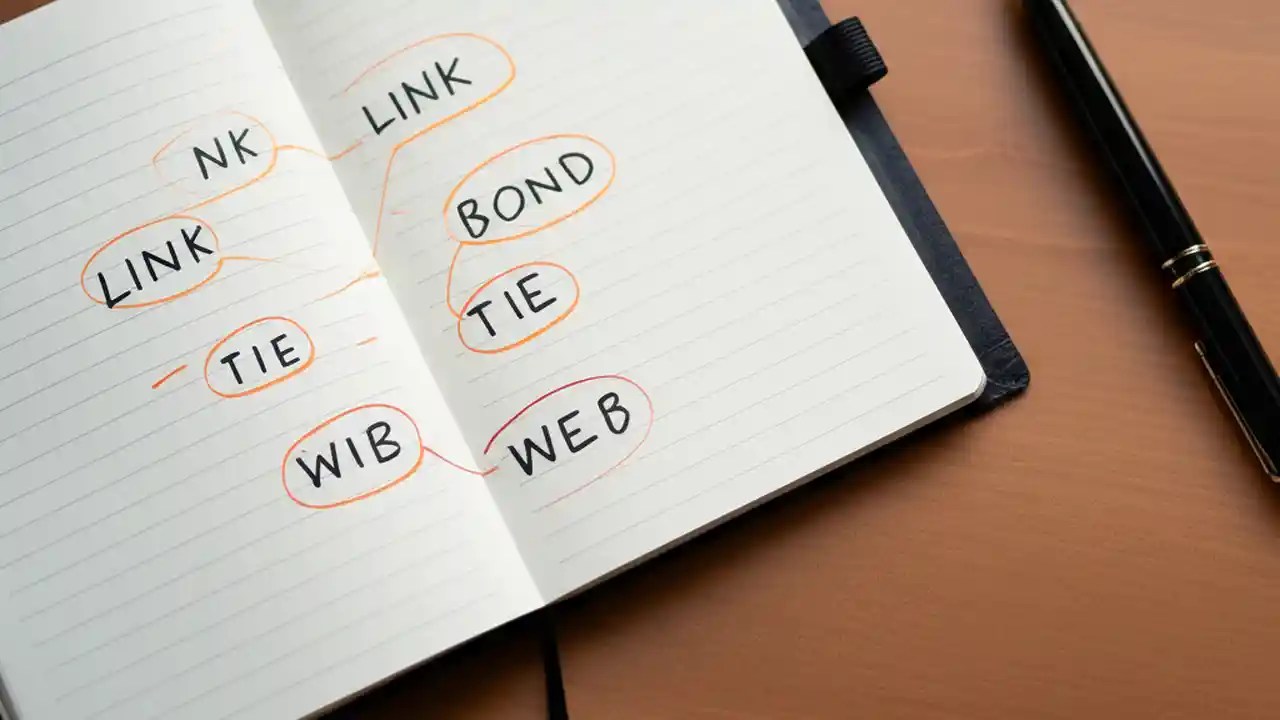 NK
LINK
TIE
WIB
LINK
BOND
TIE
WEB